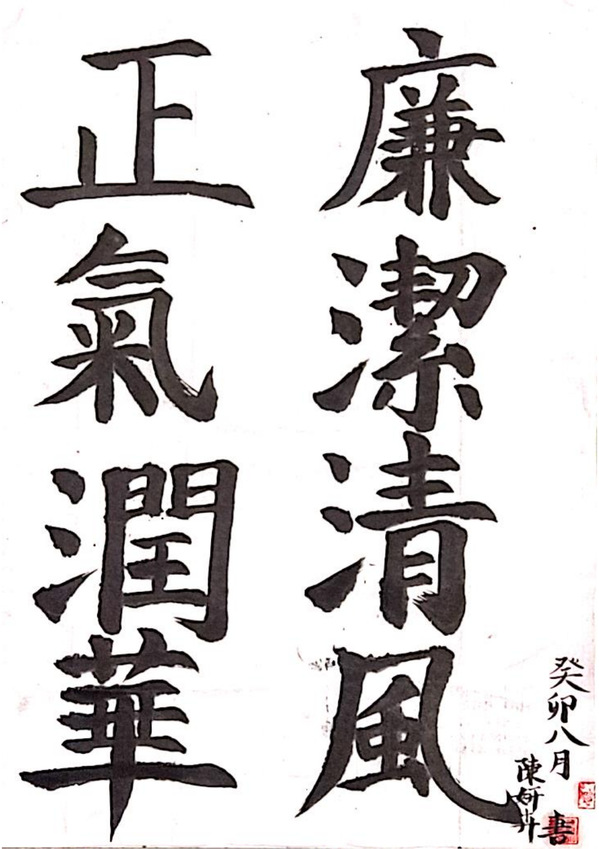 廉潔清風
正氣潤華
癸卯八月
陳妍卉書